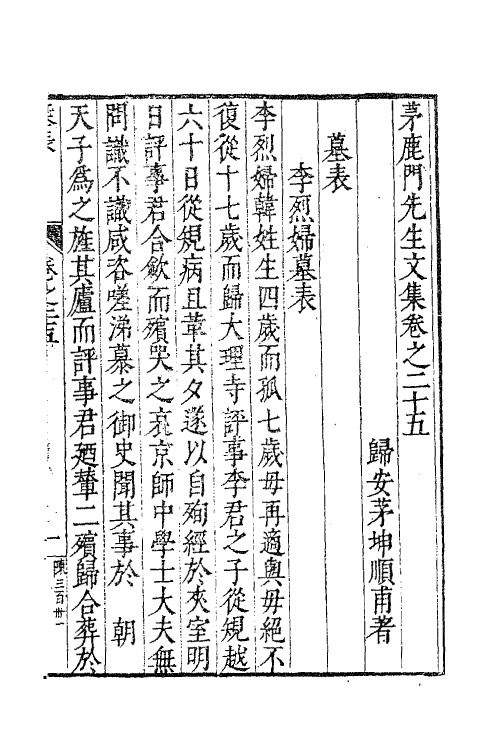 茅鹿門先生文集卷之二十五
歸安茅坤順甫著
墓表
李烈婦墓表
李烈婦韓姓生四歲而孤七歲母再適輿母絕不
復從十七歲而歸大理寺評事李君之子從規越
六十日從規病且革其夕遂以自殉經於夾室明
日評事君合歛而殯哭之哀京師中學士大夫無
問識不識咸咨嗟涕慕之御史聞其事於　朝
天子為之旌其廬而評事君廼輦二殯歸合葬於
卷之二五
一
陳三百卅一